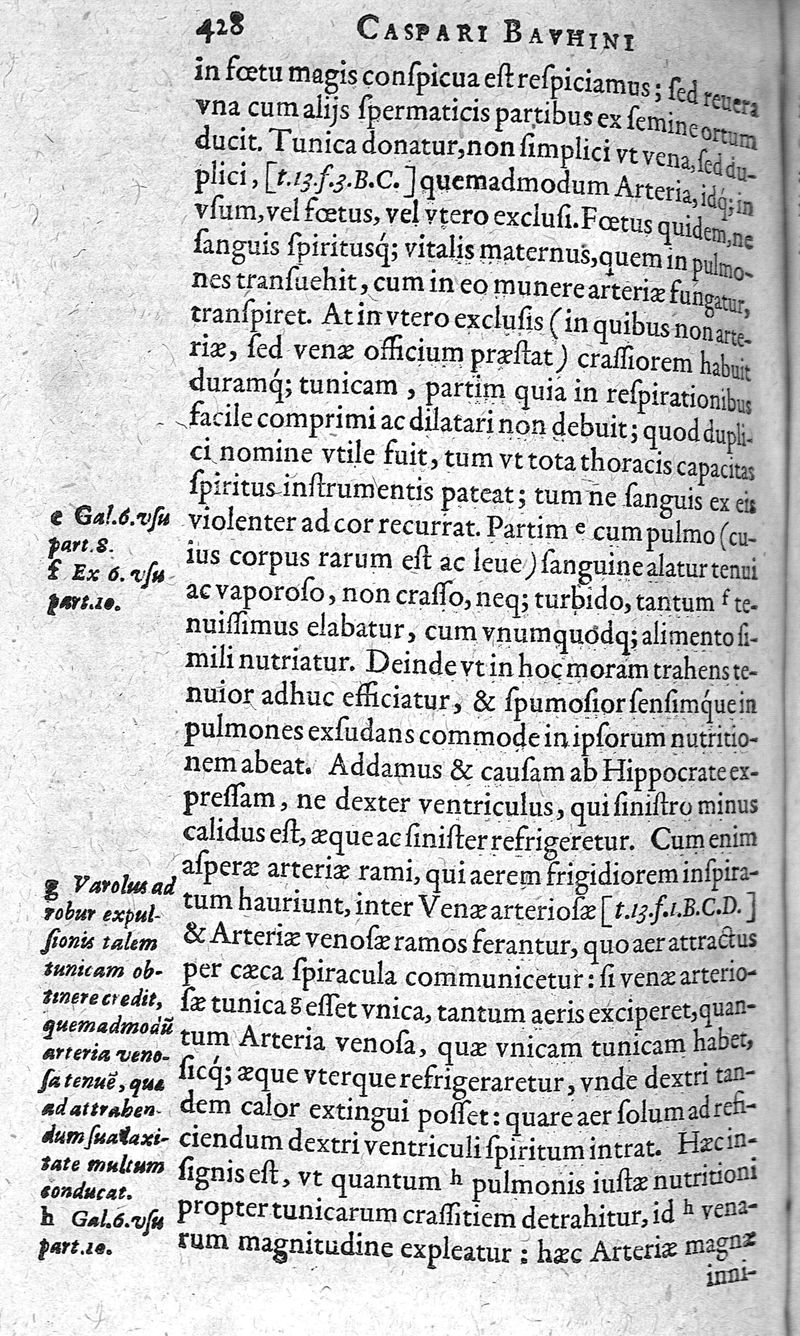 428 CASPARI BAVHINI
in fœtu magis conſpicua eſt reſpiciamus; ſed reuera
vna cum alijs ſpermaticis partibus ex ſemine ortum
ducit. Tunica donatur, non ſimplici vt vena, ſed du-
plici, [t.13.f.3.B.C.] quemadmodum Arteria, idq́; in
vſum, vel fœtus, vel vtero excluſi. Fœtus quidem, ne
ſanguis ſpiritusq́; vitalis maternus, quem in pulmo-
nes tranſuehit, cum in eo munere arteriæ fungatur,
tranſpiret. At in vtero excluſis (in quibus non arte-
riæ, ſed venæ officium præſtat) craſſiorem habuit
duramq́; tunicam, partim quia in reſpirationibus
facile comprimi ac dilatari non debuit; quod dupli-
ci nomine vtile fuit, tum vt tota thoracis capacitas
ſpiritus inſtrumentis pateat; tum ne ſanguis ex eis
violenter ad cor recurrat. Partim e cum pulmo (cu-
ius corpus rarum eſt ac leue) ſanguine alatur tenui
ac vaporoſo, non craſſo, neq; turbido, tantum f te-
nuiſſimus elabatur, cum vnumquodq; alimento ſi-
mili nutriatur. Deinde vt in hoc moram trahens te-
nuior adhuc efficiatur, & ſpumoſior ſenſimq́ue in
pulmones exſudans commode in ipſorum nutritio-
nem abeat. Addamus & cauſam ab Hippocrate ex-
preſſam, ne dexter ventriculus, qui ſiniſtro minus
calidus eſt, æque ac ſiniſter refrigeretur. Cum enim
aſperæ arteriæ rami, qui aerem frigidiorem inſpira-
tum hauriunt, inter Venæ arterioſæ [t.13.f.1.B.C.D.]
& Arteriæ venoſæ ramos ferantur, quo aer attractus
per cæca ſpiracula communicetur: ſi venæ arterio-
ſæ tunica g eſſet vnica, tantum aeris exciperet, quan-
tum Arteria venoſa, quæ vnicam tunicam habet,
ſicq́; æque vterque refrigeraretur, vnde dextri tan-
dem calor extingui poſſet: quare aer ſolum ad refi-
ciendum dextri ventriculi ſpiritum intrat. Hæc in-
ſignis eſt, vt quantum h pulmonis iuſtæ nutritioni
propter tunicarum craſſitiem detrahitur, id h vena-
rum magnitudine expleatur: hæc Arteriæ magnæ
inni-
e Gal.6.vſu
part.8.
f Ex 6. vſu
part.10.
g Varolus ad
robur expul-
ſionis talem
tunicam ob-
tinere credit,
quemadmodū
arteria veno-
ſa tenuē, quæ
ad attrahen-
dum ſua laxi-
tate multum
conducat.
h Gal.6.vſu
part.10.